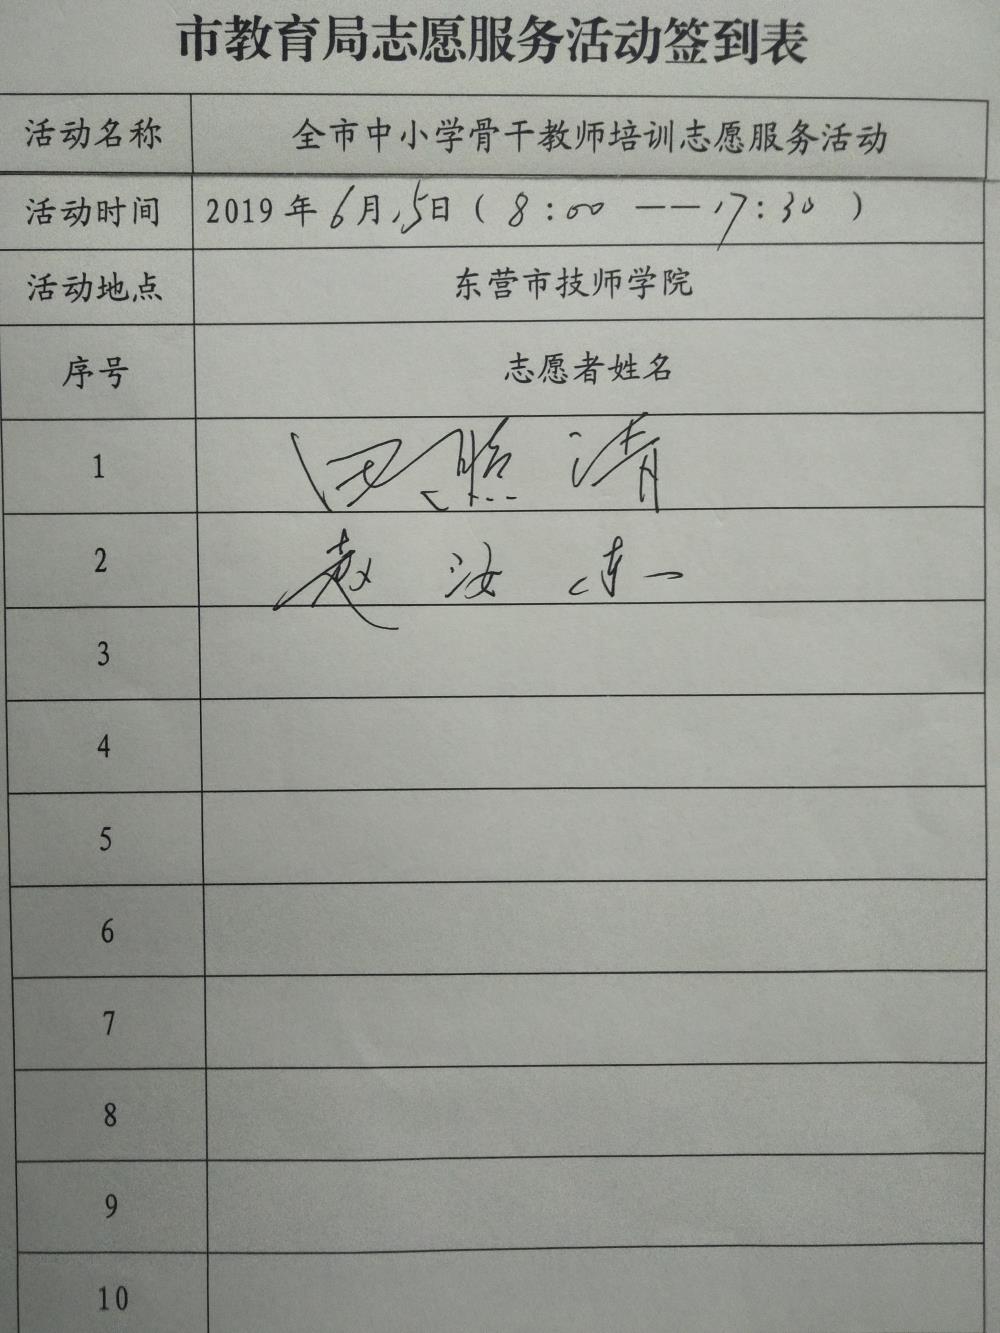 市教育局志愿服务活动签到表
活动名称 全市中小学骨干教师培训志愿服务活动
活动时间 2019年6月15日(8:00——17:30)
活动地点 东营市技师学院
序号 志愿者姓名
1 田照清
2 赵汝
3
4
5
6
7
8
9
10